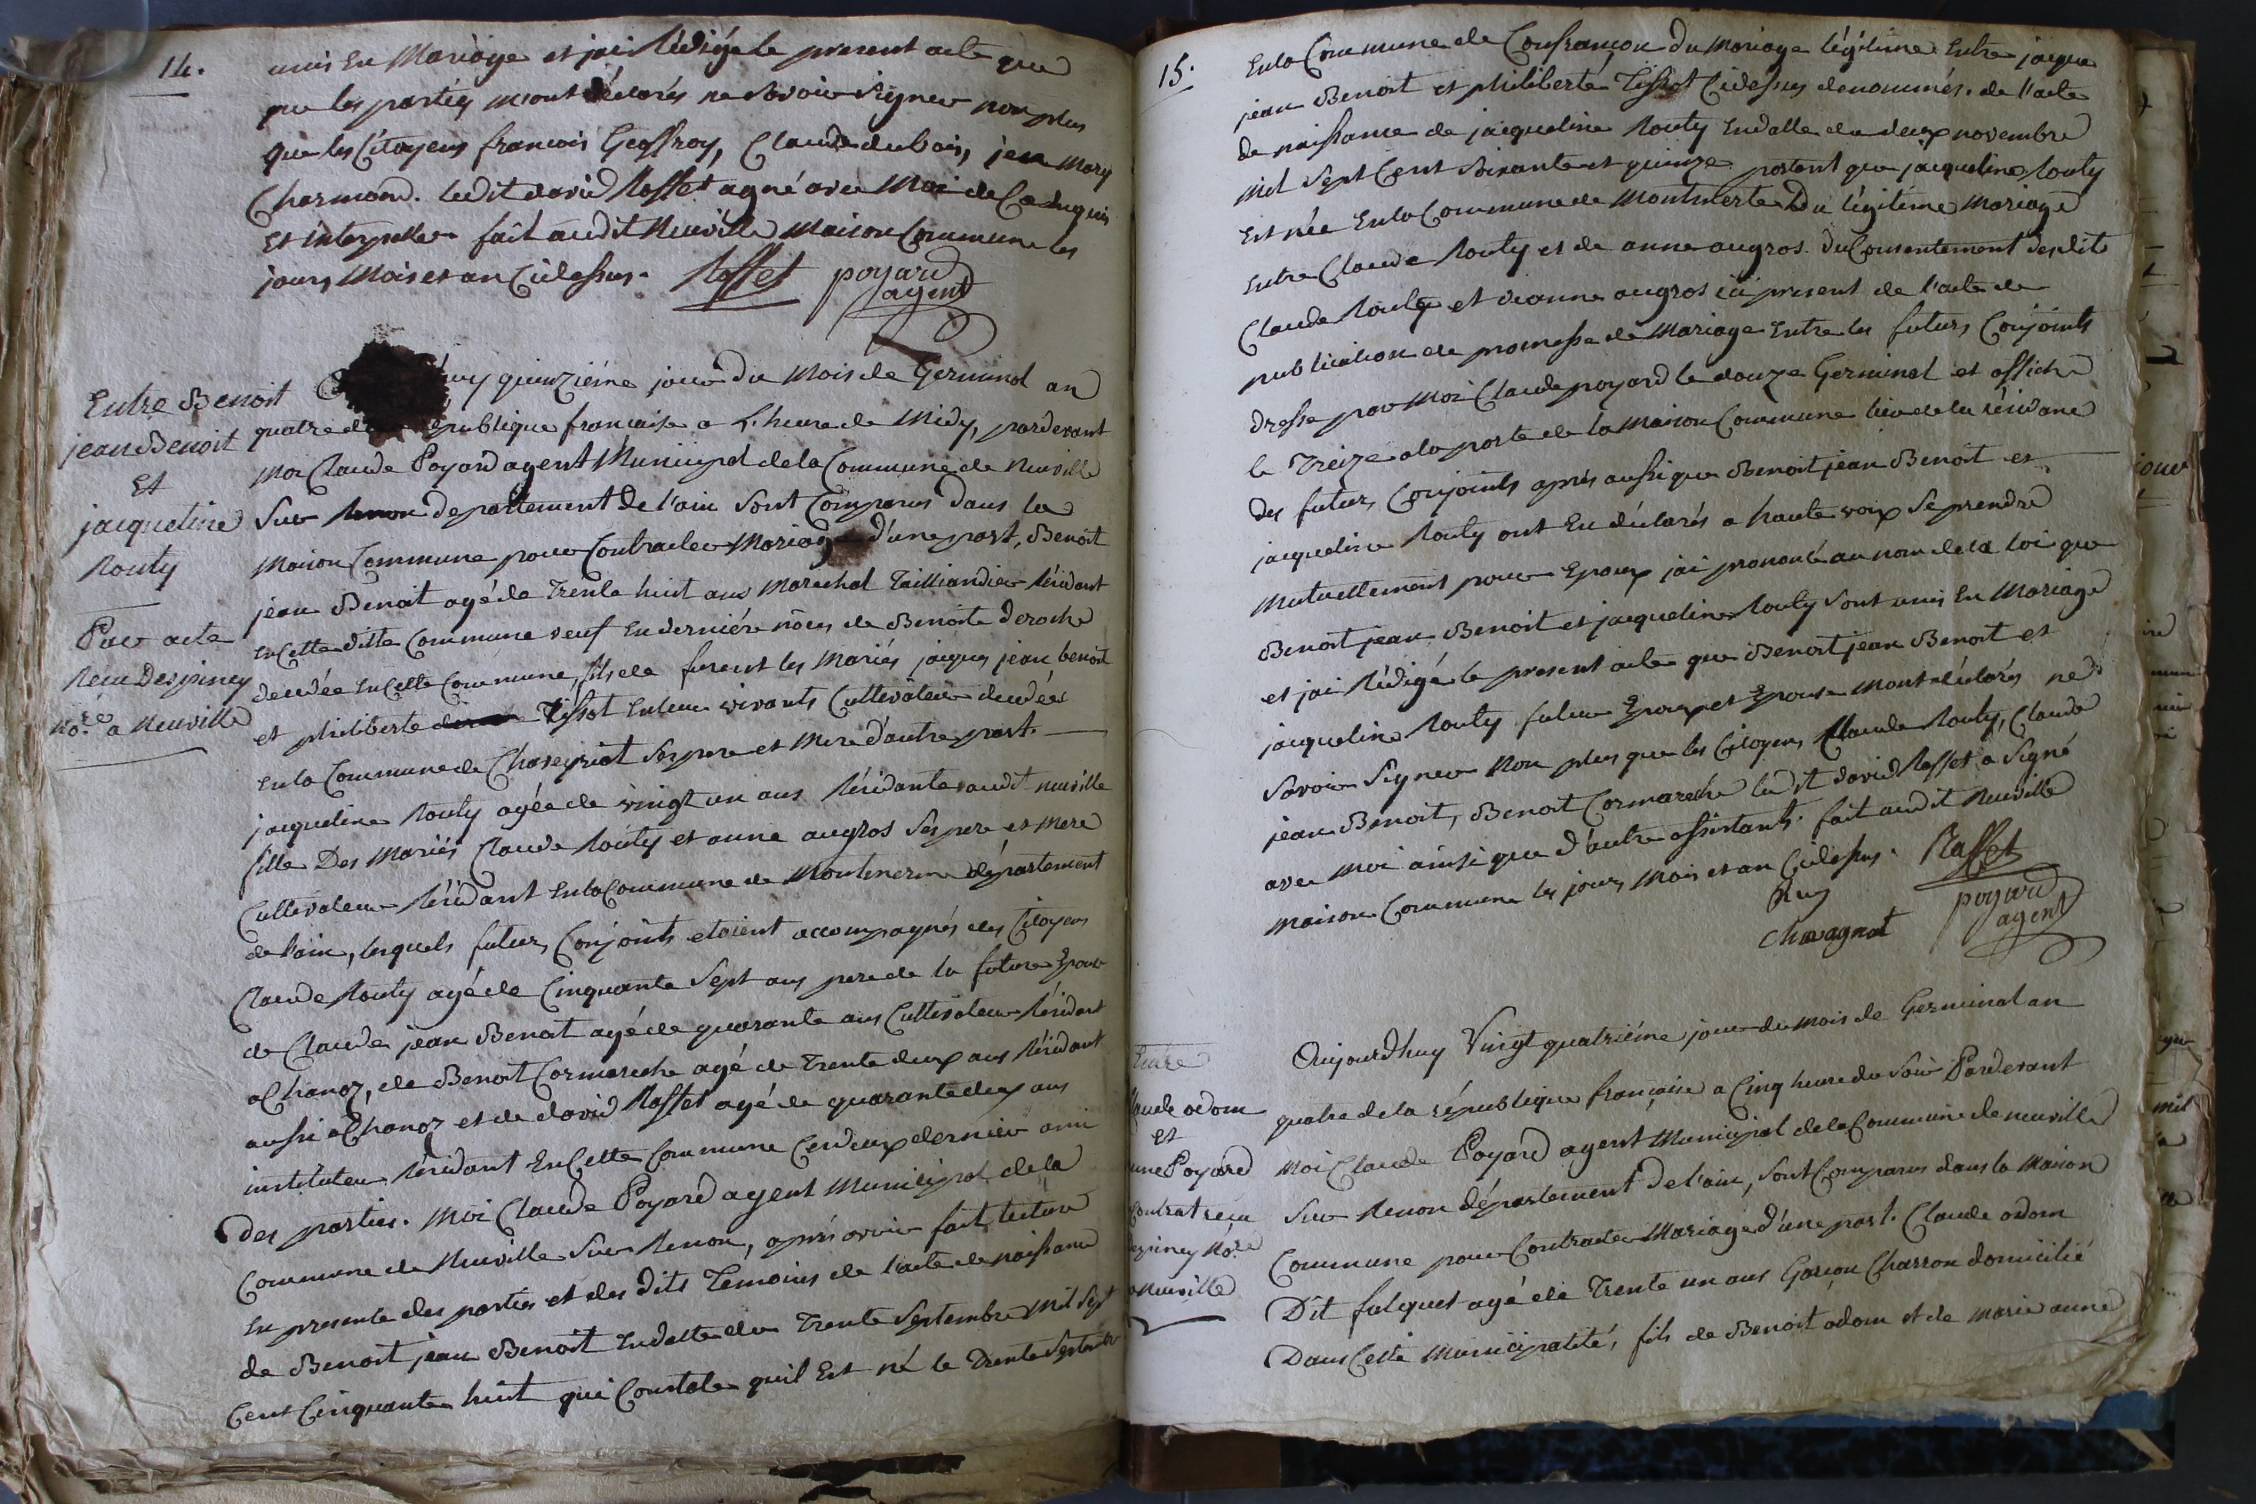 14.
unis En Mariage et jai Rédigé le present acte que
que les parties mont déclarés ne Savoir Signer non plus
que les Citoyens francois Geoffroy, Claude dubois, jean Mary
Charmond. ledit david Raffet a signé avec Moi de Ce Enquis
Et interpeller fait audit Neuville Maison Commune les
jours Mois et an Cidessus. Raffet poyard
agent
Entre Benoit
jean Benoit
Et
jacqueline
Routy
Par acte
Recu Despiney
No.re a Neuville
quinziéme jour du Mois de Germinal an
quatre de la république francaise a L'heure de Midy, pardevant
Moi Claude Poyard agent Municipal de la Commune de Neuville
Sur Renon departement de l'ain Sont Comparus dans la
Maison Commune pour Contracter Mariage d'une part, Benoit
jean Benoit agé de Trente huit ans Marechal Tailliandier Résidant
En Cette ditte Commune veuf En derniére nôces de Benoite Deroche
decedée En Cette Commune, fils de furent les Mariés jacques jean benoit
et philiberte Tissot En leur vivants Cultivateur decedés
En la Commune de Chaveyriat Ses pere et Mere d'autre part.
jacqueline Routy agée de vingt un ans Résidante audit neuville
fille Des Mariés Claude Routy et anne augros Ses pere et Mere
Cultivateur Résidant En la Commune de département
de l'ain, lesquels futurs Conjoints etoient accompagnés des Citoyens
Claude Routy agé de Cinquante Sept ans pere de la future Epouse
de Claude jean Benoit agé de quarante ans Cultivateur Résidant
a Chanoz, de Benoit Cormareche agé de Trente deux ans Résidant
aussi a Chanoz et de david Raffet agé de quarante deux ans
instituteur Résidant En Cette Commune Ces deux dernier ami
Des parties. Moi Claude Poyard agent Municipal de la
Commune de Neuville Sur Renon, aprés avoir fait lecture
En presence des parties et des dits Témoins de l'acte de naissance
de Benoit jean Benoit En datte du Trente Septembre Mil Sept
Cent Cinquante huit qui Constate quil Est né le Trente Septembre
15.
En la Commune de Confrancon du Mariage légitime Entre jacque
jean Benoit et philiberte Tissot Cidessus denommés. de l'acte
de naissance de jacqueline Routy En datte du deux novembre
Mil Sept Cent Soixante et quinze portant que jacqueline Routy
Est née En la Commune de Du légitime Mariage
Entre Claude Routy et de anne augros. du Consentement desdits
Claude Routy et anne augros ici present de l'acte de
publication de promesse de Mariage Entre les futurs Conjoints
dressé par Moi Claude poyard le douze Germinal et affiché
le Treize a la porte de la Maison Commune lieu de la résidance
des futurs Conjoints aprés aussi que Benoit jean Benoit et
jacqueline Routy ont Eu déclarés a haute voix Se prendre
Mutuellement pour Epoux jai prononcé au nom de la Loi que
Benoit jean Benoit et jacqueline Routy Sont unis En Mariage
et jai Rédigé le present acte que Benoit jean Benoit et
jacqueline Routy futur Epoux et Epouse Mont déclarés ne
Savoir Signer Non plus que les Citoyens Claude Routy, Claude
jean Benoit, Benoit Cormareche ledit david Raffet a Signé
avec Moi ainsi que d'autre assistants. fait audit Neuville
Maison Commune les jours Mois et an Cidessus. Raffet
poyard
agent
Chavagnat
Entre
Claude odom
Et
Poyard
Contrat recu
Despiney No.re
a Neuville
Aujourdhuy Vingt quatriéme jour du mois de Germinal an
quatre de la république francaise a Cinq heure du Soir Pardevant
Moi Claude Poyard agent Municipal de la Commune de neuville
Sur Renon département de l'ain, Sont Comparus dans la Maison
Commune pour Contracter Mariage d'une part. Claude odom
Dit fulquet agé de Trente un ans Garcon Charron domicilié
Dans Cette Municipalité, fils de Benoit odom et de Marie anne